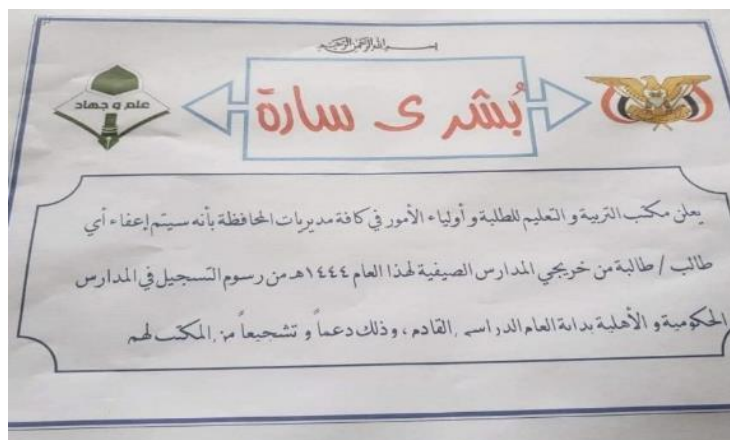 بسم الله الرحمن الرحيم
علم و جهاد
بُشرى سارة
يعلن مكتب التربية و التعليم للطلبة و أولياء الأمور في كافة مديريات المحافظة بأنه سيتم إعفاء أي
طالب / طالبة من خريجي المدارس الصيفية لهذا العام ١٤٤٤هـ من رسوم التسجيل في المدارس
الحكومية و الأهلية بداية العام الدراسي القادم ، وذلك دعماً و تشجيعاً من المكتب لهم